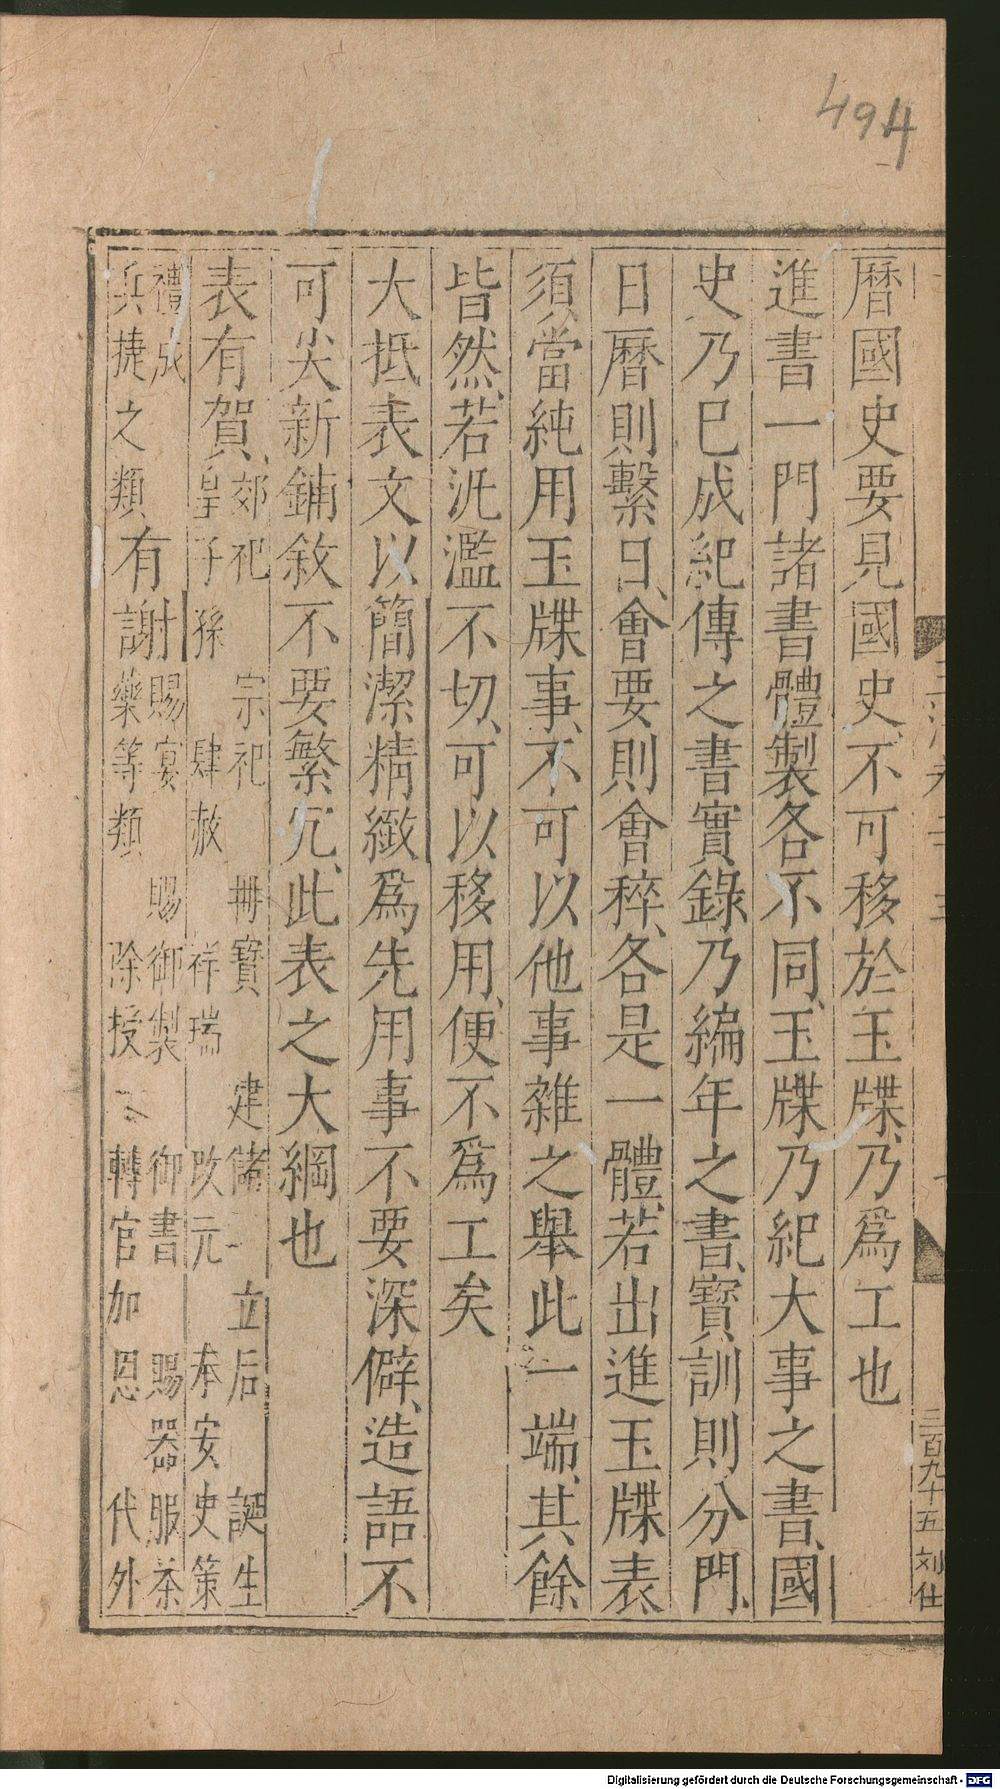 494
曆國史要見國史不可移於玉牒乃爲工也
進書一門諸書體製各不同玉牒乃紀大事之書國
史乃巳成紀傳之書實錄乃編年之書寳訓則分門
日曆則繫日會要則會稡各是一體若出進玉牒表
須當純用玉牒事不可以他事雜之舉此一端其餘
皆然若泛濫不切可以移用便不爲工矣
大抵表文以簡潔精緻爲先用事不要深僻造語不
可尖新鋪敘不要繁冗此表之大綱也
表有賀郊祀 宗祀 冊寳 建儲 立后 誕生
皇子孫 肆赦 祥瑞 改元 奉安史策
禮成
兵捷之類有謝賜宴 賜御製 御書 賜器服茶
藥等類 除授 轉官加恩 代外
三百九十五 刘仕
Digitalisierung gefördert durch die Deutsche Forschungsgemeinschaft - DFG